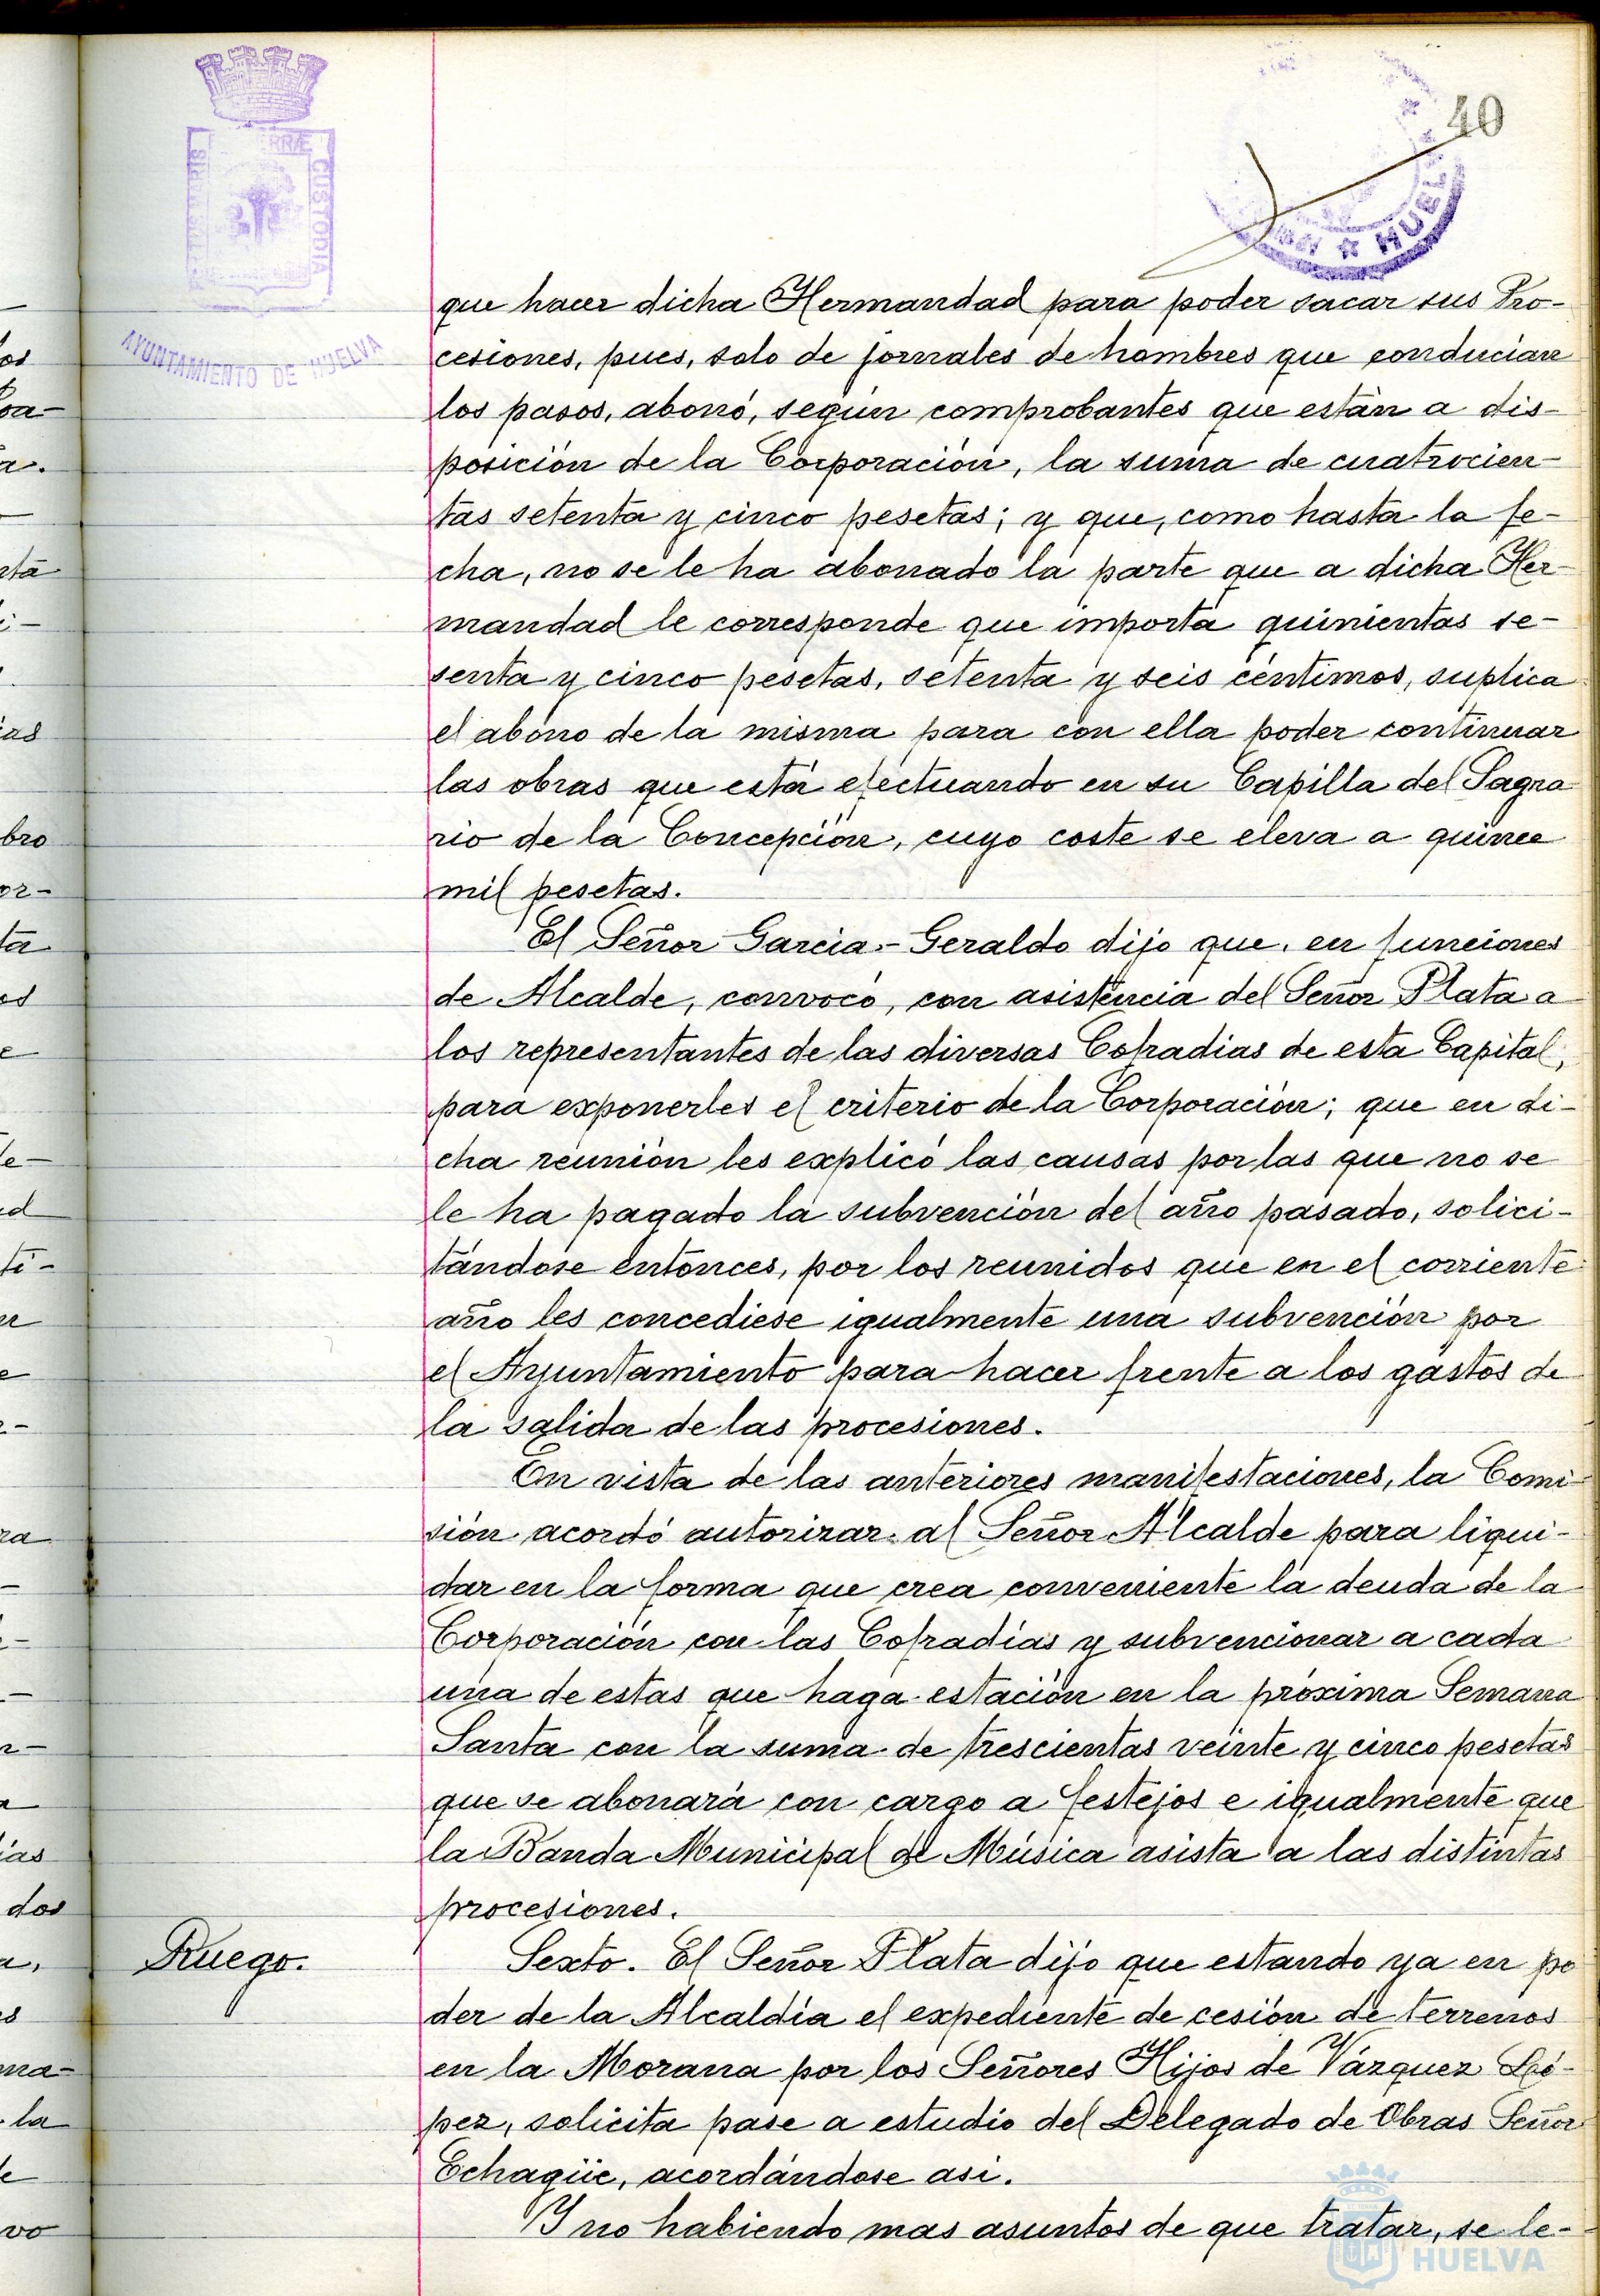 40
PORTUS MARIS ET TERRÆ CUSTODIA
AYUNTAMIENTO DE HUELVA
HUELVA
que hacer dicha Hermandad para poder sacar sus Pro-
cesiones, pues, solo de jornales de hombres que conducian
los pasos, abonó, según comprobantes que están a dis-
posición de la Corporación, la suma de cuatrocien-
tas setenta y cinco pesetas; y que, como hasta la fe-
cha, no se le ha abonado la parte que a dicha Her-
mandad le corresponde que importa quinientas se-
senta y cinco pesetas, setenta y seis céntimos, suplica
el abono de la misma para con ella poder continuar
las obras que está efectuando en su Capilla del Sagra
rio de la Concepción, cuyo coste se eleva a quince
mil pesetas.
El Señor Garcia-Geraldo dijo que, en funciones
de Alcalde, convocó, con asistencia del Señor Plata a
los representantes de las diversas Cofradias de esta Capital,
para exponerles el criterio de la Corporación; que en di-
cha reunión les explicó las causas por las que no se
le ha pagado la subvención del año pasado, solici-
tándose entonces, por los reunidos que en el corriente
año les concediese igualmente una subvención por
el Ayuntamiento para hacer frente a los gastos de
la salida de las procesiones.
En vista de las anteriores manifestaciones, la Comi-
sión acordó autorizar al Señor Alcalde para liqui-
dar en la forma que crea conveniente la deuda de la
Corporación con las Cofradias y subvencionar a cada
una de estas que haga estación en la próxima Semana
Santa con la suma de trescientas veinte y cinco pesetas
que se abonará con cargo a festejos e igualmente que
la Banda Municipal de Música asista a las distintas
procesiones.
Ruego.
Sexto. El Señor Plata dijo que estando ya en po
der de la Alcaldía el expediente de cesión de terrenos
en la Morana por los Señores Hijos de Vázquez Ló-
pez, solicita pase a estudio del Delegado de Obras Señor
Echagüe, acordándose asi.
Y no habiendo mas asuntos de que tratar, se le-
HUELVA